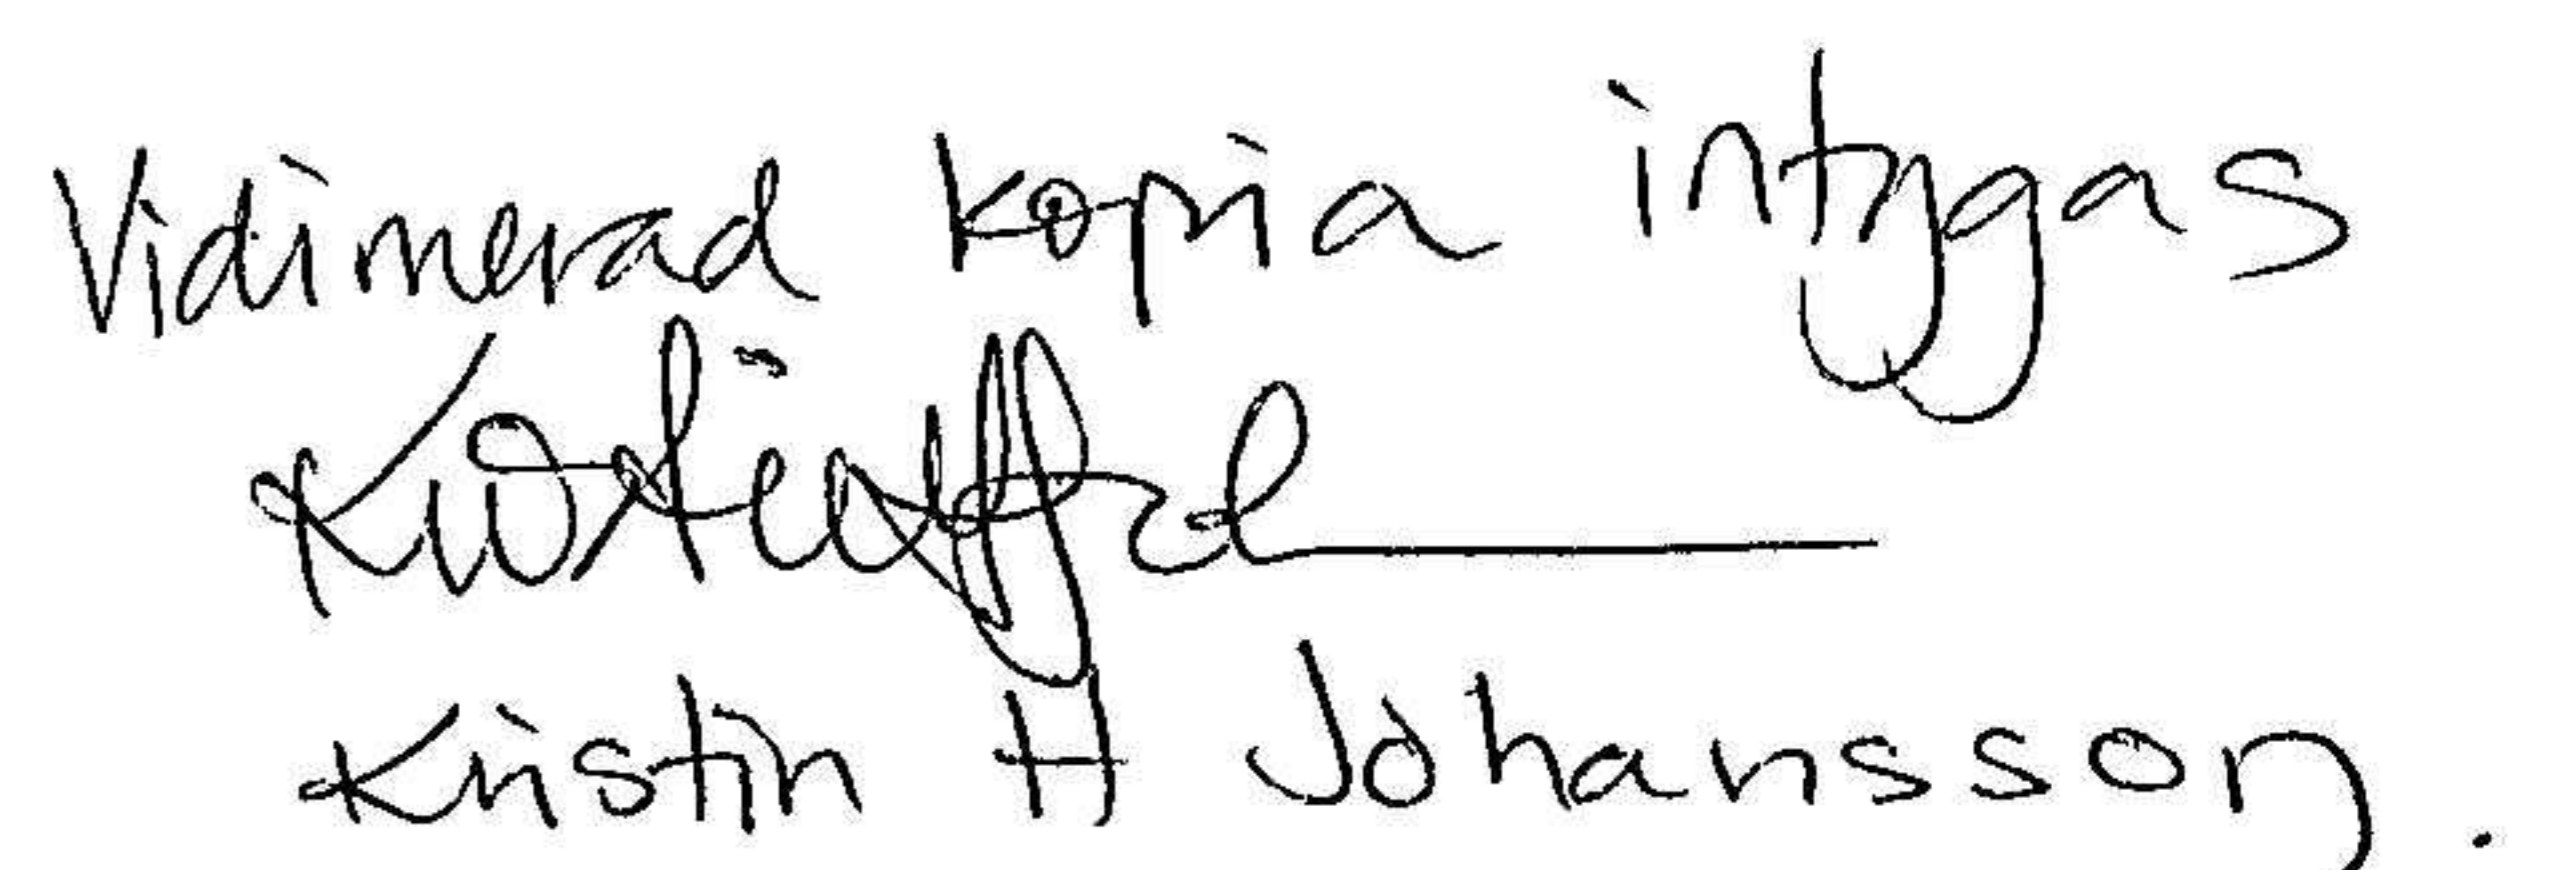 Vidimerad kopia intygas
Kristin H Johansson.